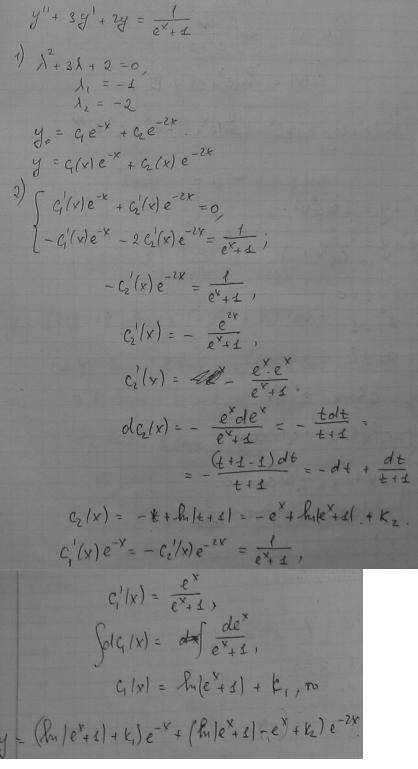 y'' + 3y' + 2y = 1/(e^x+1)
1) λ² + 3λ + 2 = 0,
λ₁ = -1
λ₂ = -2
y₀ = c₁e^(-x) + c₂e^(-2x)
y = c₁(x)e^(-x) + c₂(x)e^(-2x)
2) { c₁'(x)e^(-x) + c₂'(x)e^(-2x) = 0,
-c₁'(x)e^(-x) - 2c₂'(x)e^(-2x) = 1/(e^x+1);
-c₂'(x)e^(-2x) = 1/(e^x+1),
c₂'(x) = - e^(2x)/(e^x+1),
c₂'(x) = - e^x·e^x/(e^x+1).
dc₂(x) = - e^x de^x/(e^x+1) = - tdt/(t+1) =
= - (t+1-1)dt/(t+1) = -dt + dt/(t+1)
c₂(x) = -t + ln|t+1| = -e^x + ln|e^x+1| + k₂.
c₁'(x)e^(-x) = -c₂'(x)e^(-2x) = 1/(e^x+1),
c₁'(x) = e^x/(e^x+1),
∫dc₁(x) = ∫ de^x/(e^x+1),
c₁(x) = ln|e^x+1| + k₁, то
y = (ln|e^x+1| + k₁)e^(-x) + (ln|e^x+1| - e^x + k₂)e^(-2x).